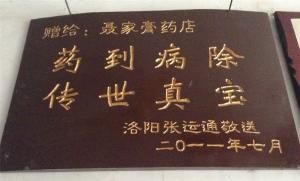 赠给：聂家膏药店
药到病除
传世真宝
洛阳张运通敬送
二〇一一年七月